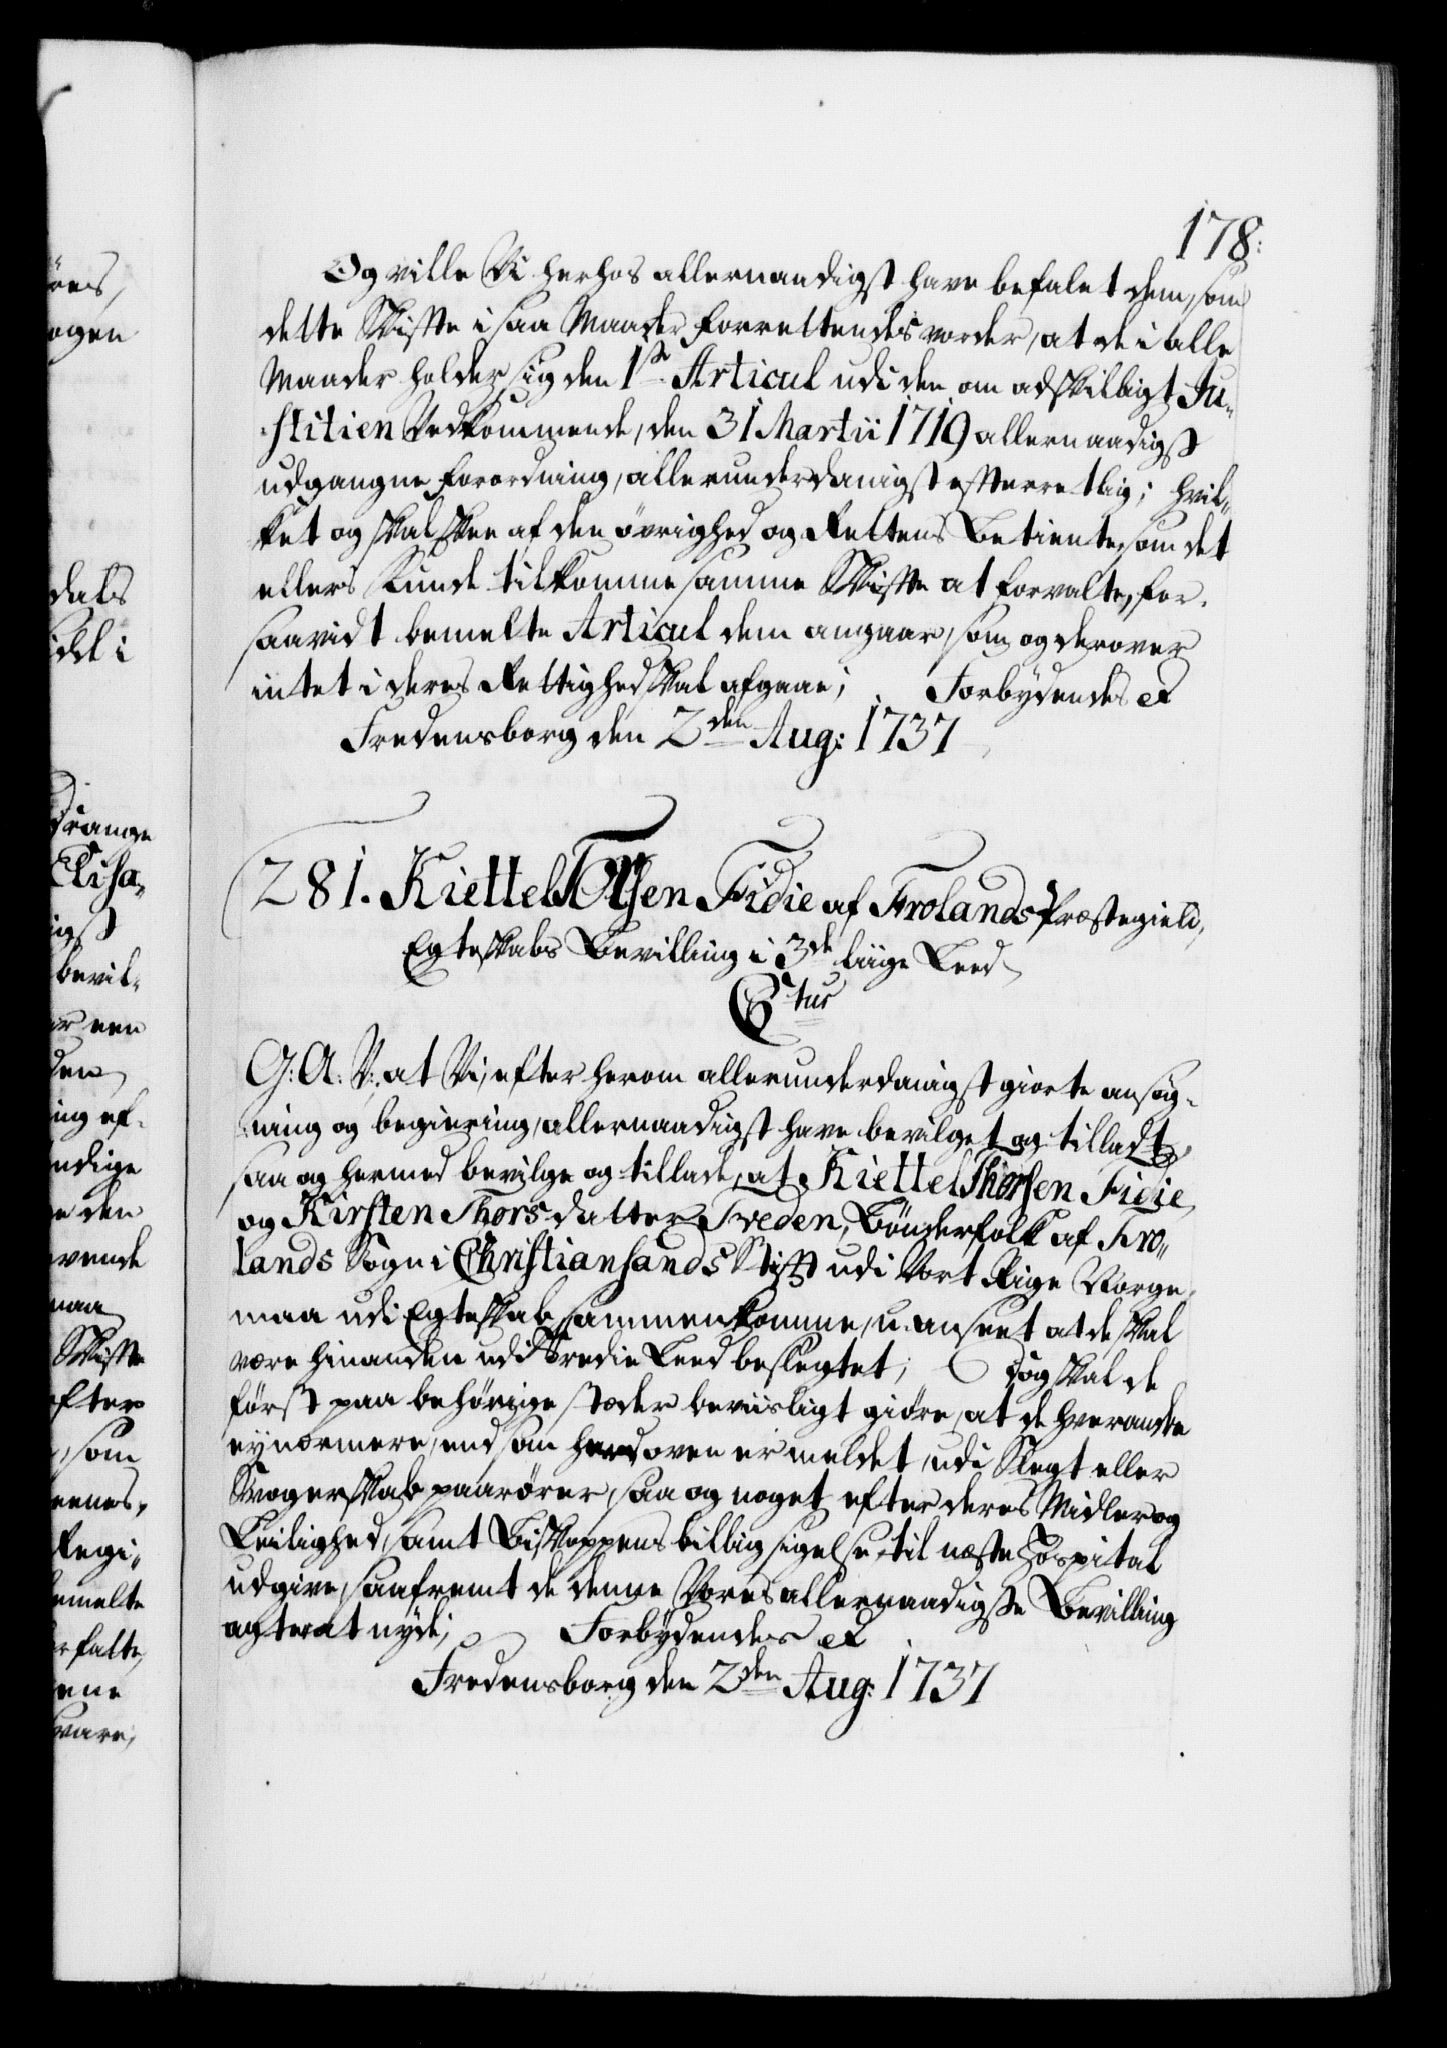 178.
Og ville Vi herhos allernaadigst have befalet dem, som
dette Skiffte i saa Maader forrettendes vorder, at de i alle
Maader holder sig den 1ste Articul udi den om adskilligt Ju-
stitien Vedkommende, den 31 Martii 1719 allernaadigst
udgangne forordning, allerunderdanigst effterretlig; hvil-
ket og skal skee af den øvrighed og Rettens Betiente, som det
ellers kunde tilkomme samme Skiffte at forvalte, for-
saavidt bemelte Articul dem angaar, som og derover
intet i deres Rettighed skal afgaae; Forbydendes &
Fredensborg den 2den Aug: 1737
281. Kiettel Olsen Fidie af Frolands Præstegield,
Egteskabs Bevilling i 3de liige Leed
Ctus
G: A: V:, at Vi, efter herom allerunderdanigst giorte ansøg-
ning og begiering, allernaadigst have bevilget og tilladt,
saa og hermed bevilge og tillade, at Kiettel Thorsen Fidie
og Kirsten Thorsdatter Tveden, Bønderfolk af Fro-
lands Sogn i Christiansands Stifft udi Vort Rige Norge,
maa udi Egteskab sammenkomme, u-anseet at de skal
være hinanden udi Tredie Leed beslegtet; Dog skal de
først paa behørige stæder beviisligt giøre, at de hverandre
ey nærmere, end som herd oven er meldet, udi Slegt eller
Svogerskab paarører, saa og noget efter deres Midler og
Leilighed, samt Biskoppens billig sigelse, til næste Hospital
udgive, saafremt de denne Vores allernaadigste Bevilling
agter at nyde; Forbydendes &
Fredensborg den 2den Aug: 1737